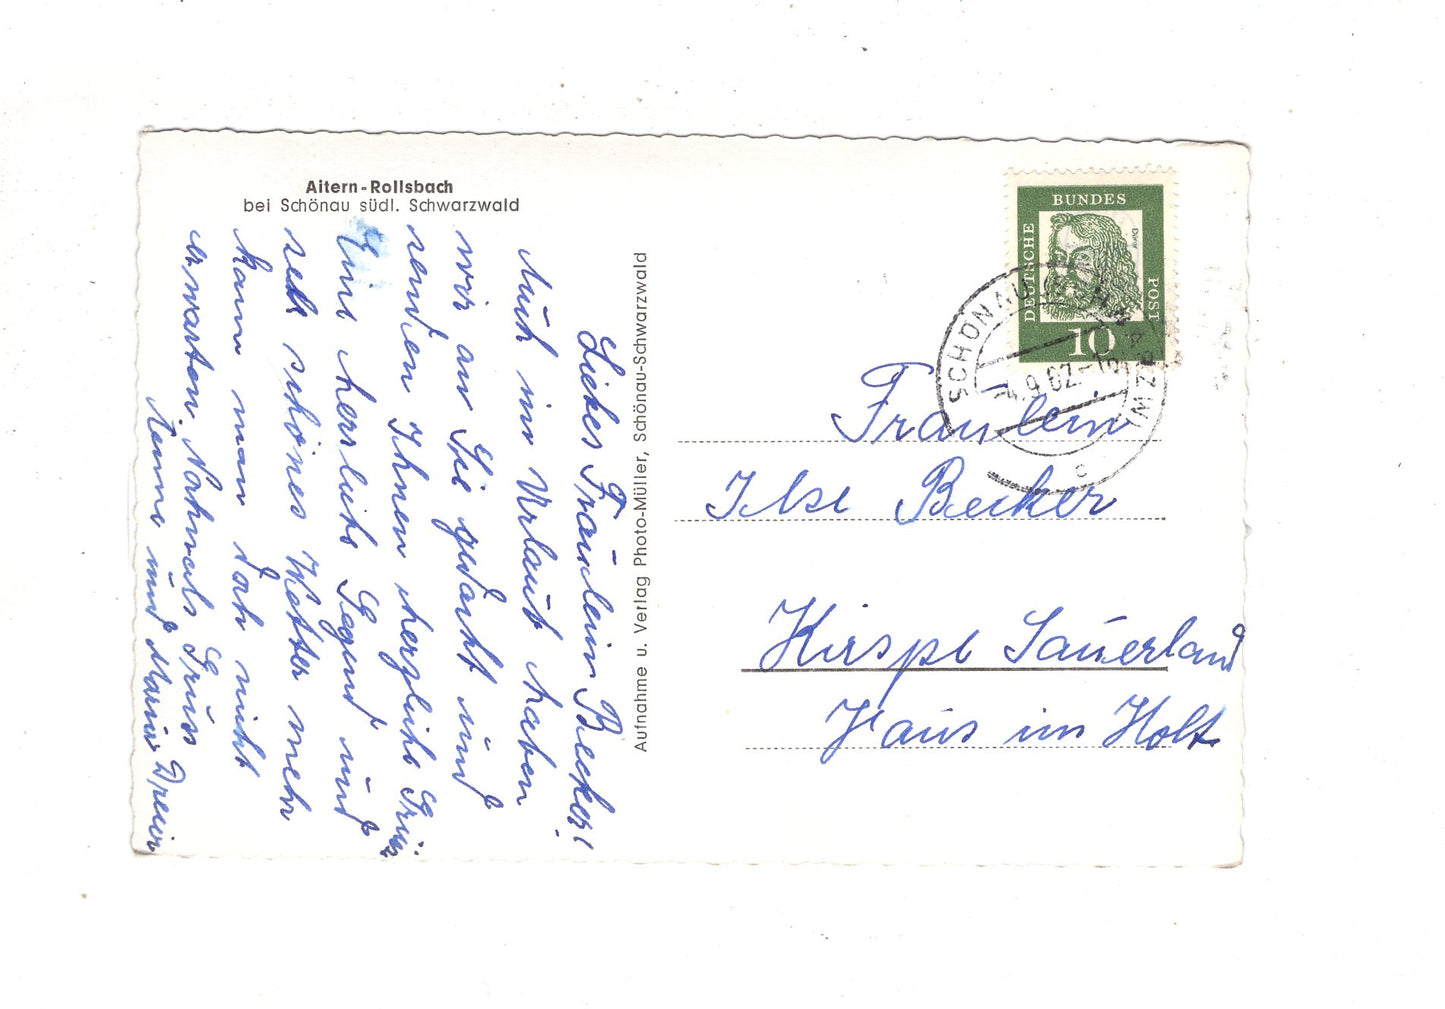 Aitern-Rollsbach
bei Schönau südl. Schwarzwald
Liebes Fräulein Becker!
Auch im Urlaub haben
wir an Sie gedacht und
senden Ihnen herzliche Grüße
Eine herrliche Gegend und
sehr schönes Wetter mehr
kann man doch nicht
erwarten. Nochmals Gruss
Änne und Maria
Aufnahme u. Verlag Photo-Müller, Schönau-Schwarzwald
DEUTSCHE
BUNDES
POST
Dürer
10
SCHÖNAU
4.9.62.-18
c
Fräulein
Ilse Becker
Kirspe Sauerland
Haus im Holt